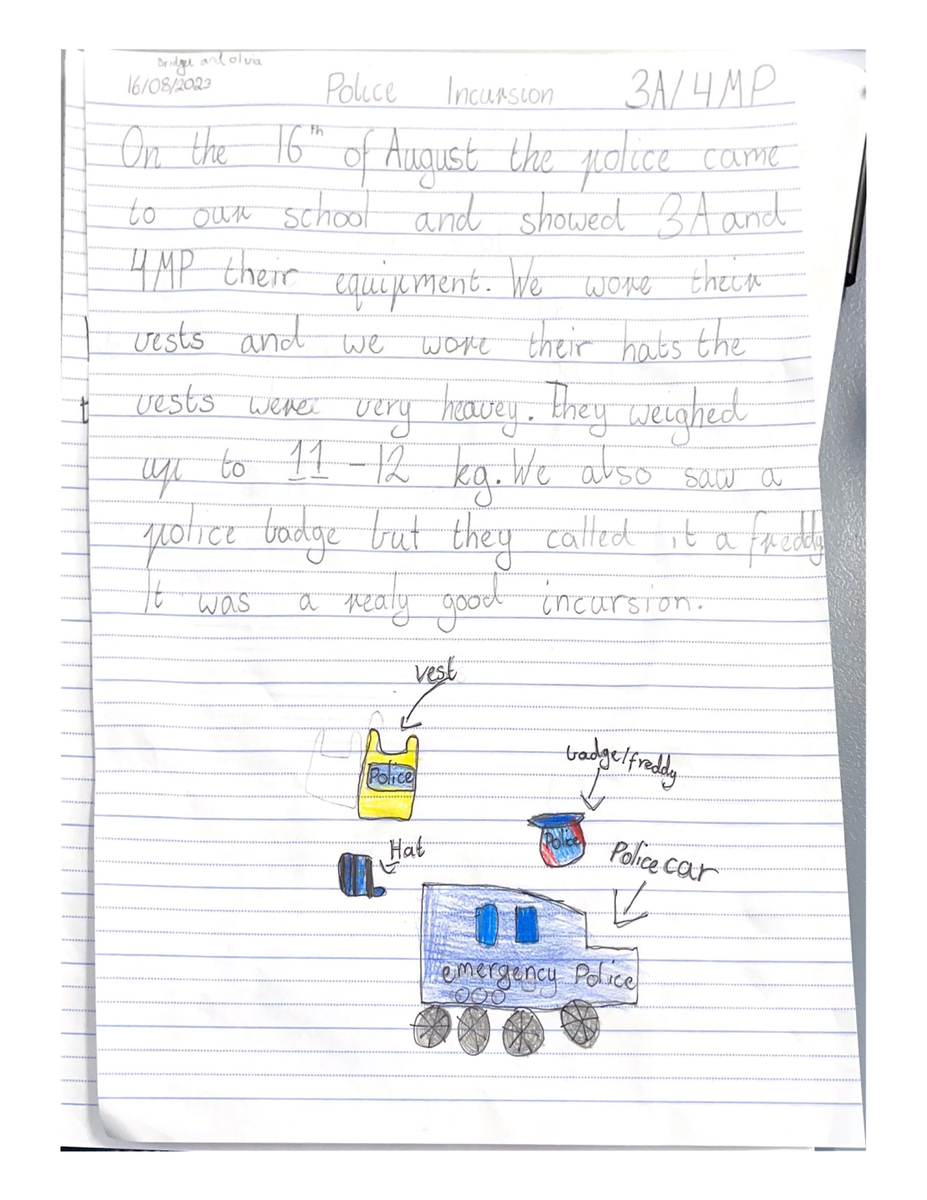 Bridget and olivia
16/08/2023 Police Incursion 3A/4MP
On the 16th of August the police came
to our school and showed 3A and
4MP their equipment. We wore their
vests and we wore their hats the
vests were very heavey. They weighed
up to 11-12 kg. We also saw a
police badge but they called it a freddy
It was a realy good incursion.
vest
Police
badge/freddy
Police
Hat
Police car
emergency Police